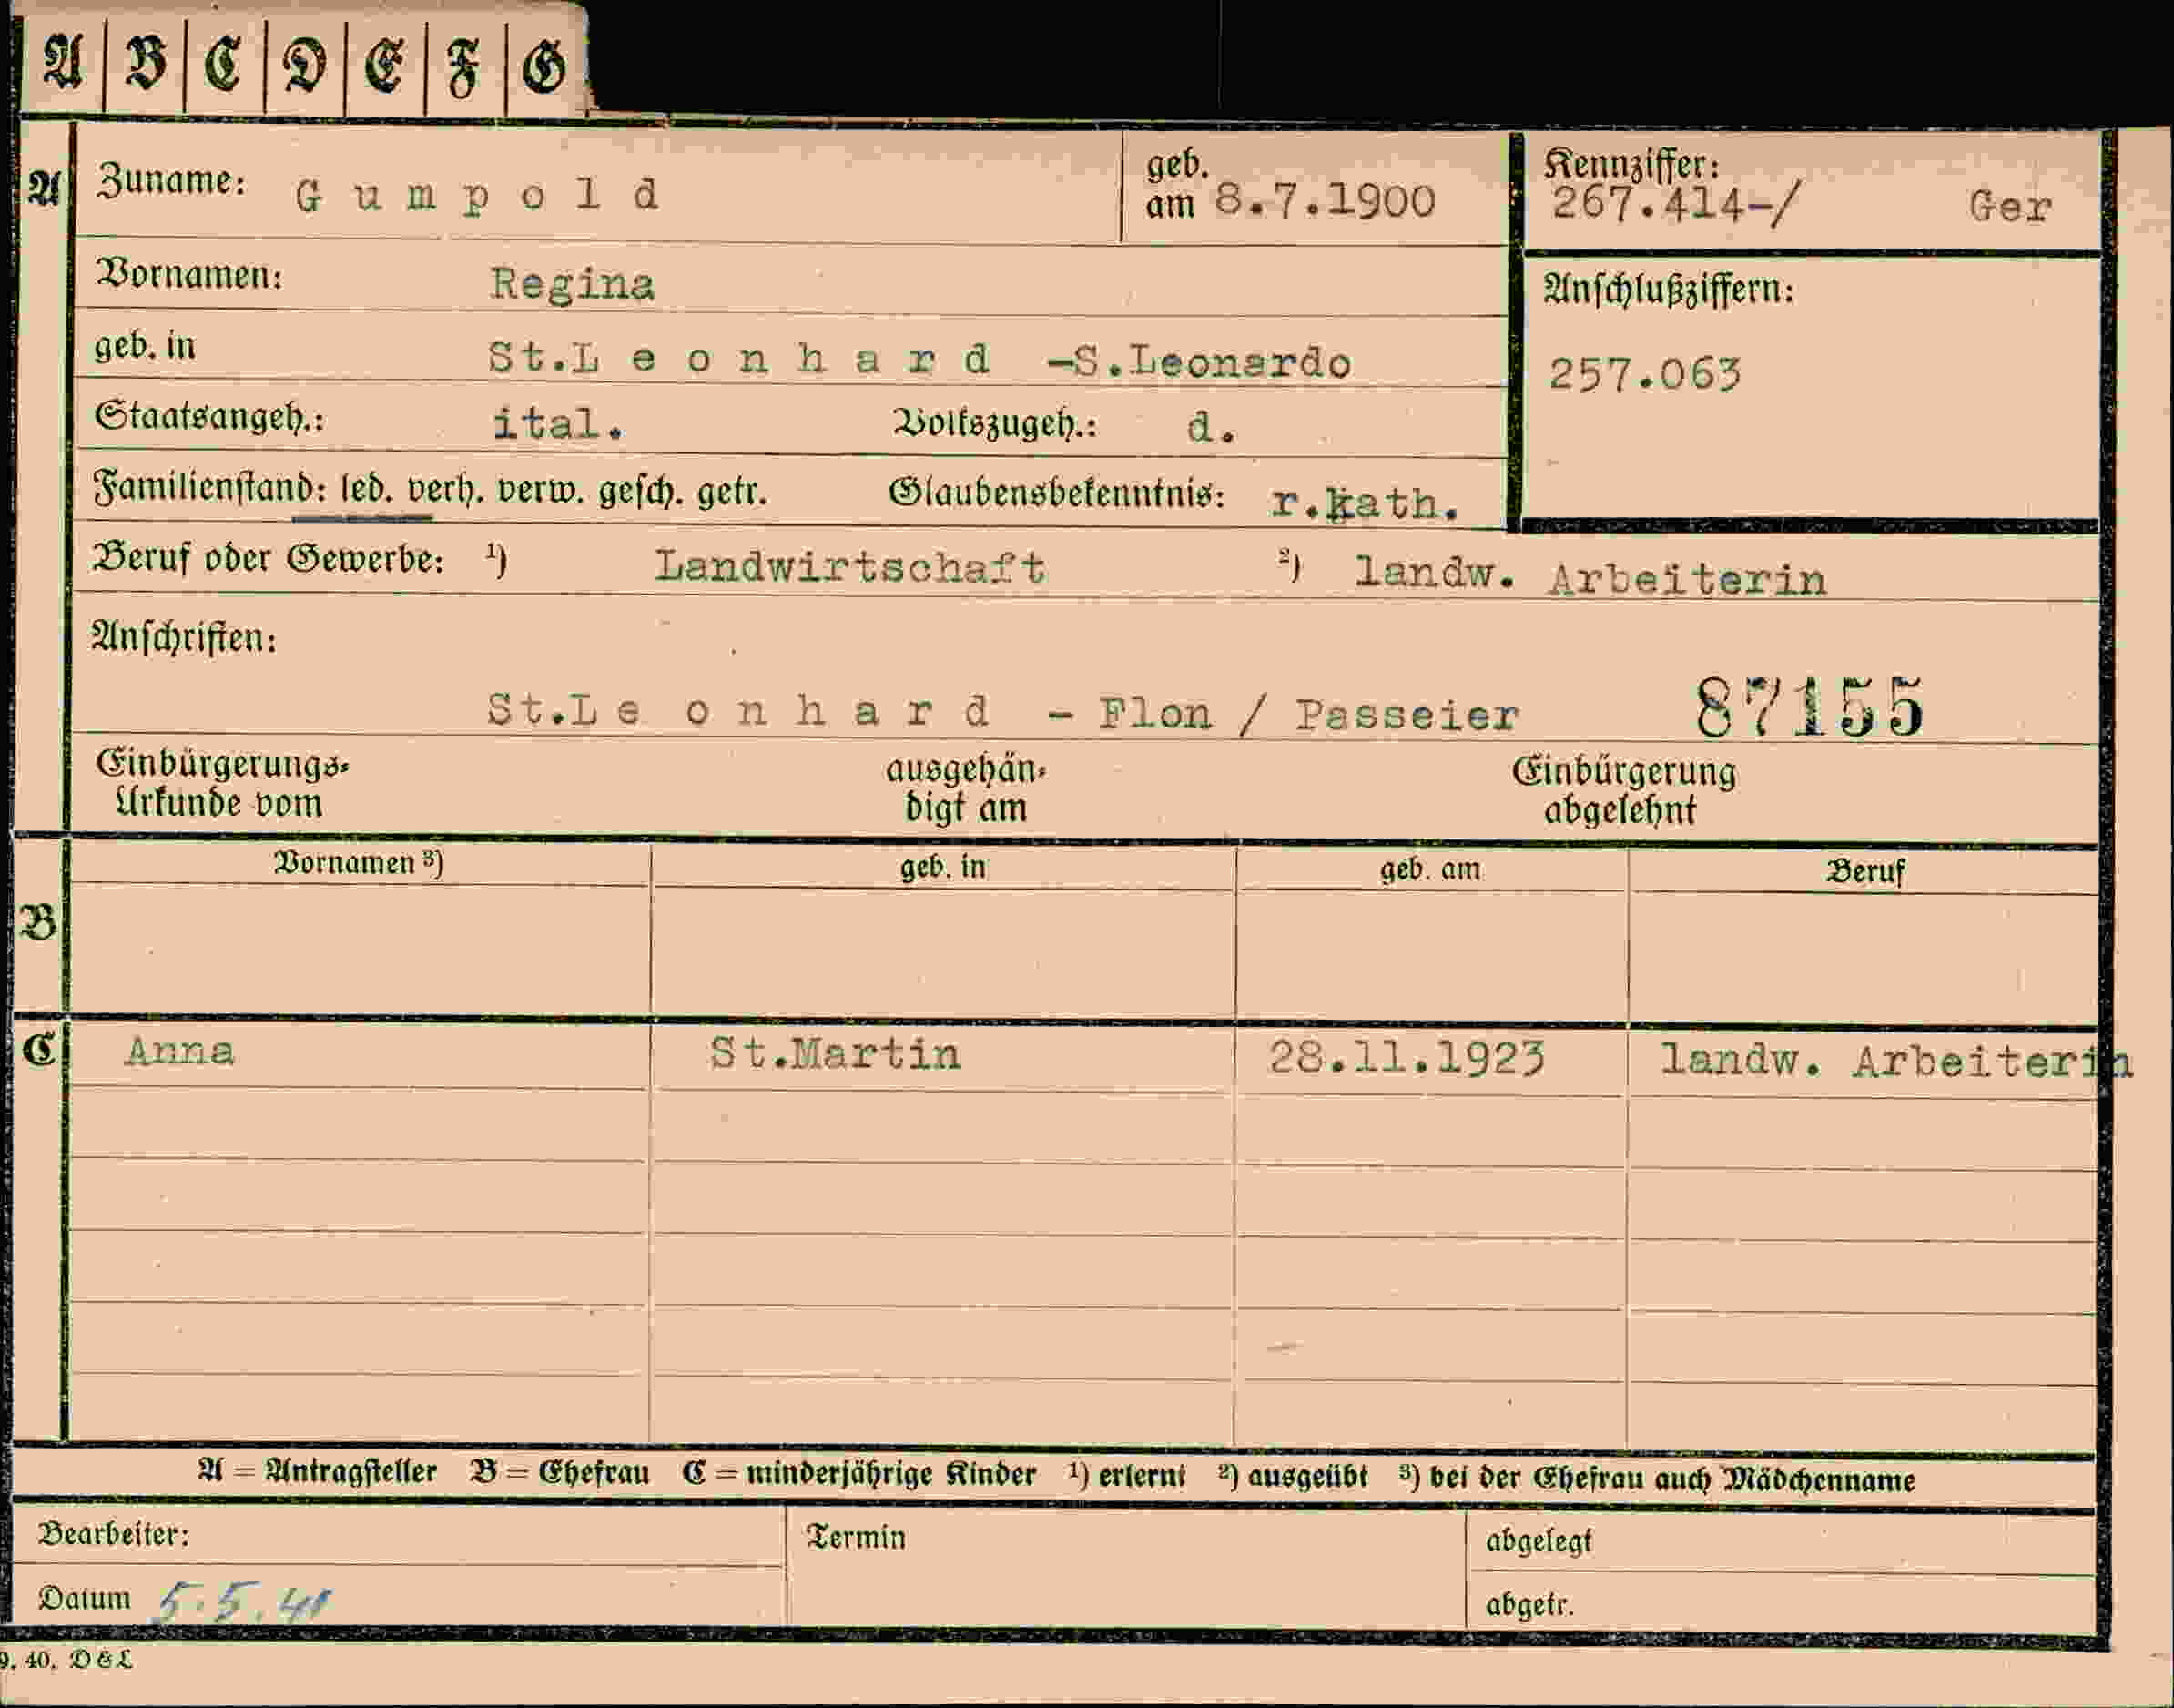 A B C D E F G
A Zuname: Gumpold geb. am 8.7.1900 Kennziffer: 267.414-/ Ger
Vornamen: Regina Anschlußziffern:
geb. in St.Leonhard -S.Leonardo 257.063
Staatsangeh.: ital. Volkszugeh.: d.
Familienstand: led. verh. verw. gesch. getr. Glaubensbekenntnis: r.kath.
Beruf oder Gewerbe: ¹) Landwirtschaft ²) landw. Arbeiterin
Anschriften:
St.Leonhard - Flon / Passeier 87155
Einbürgerungs- ausgehän- Einbürgerung
Urkunde vom digt am abgelehnt
Vornamen ³) geb. in geb. am Beruf
B
C Anna St.Martin 28.11.1923 landw. Arbeiterin
A = Antragsteller B = Ehefrau C = minderjährige Kinder ¹) erlernt ²) ausgeübt ³) bei der Ehefrau auch Mädchenname
Bearbeiter: Termin abgelegt
Datum 5.5.41 abgetr.
9. 40. D & L